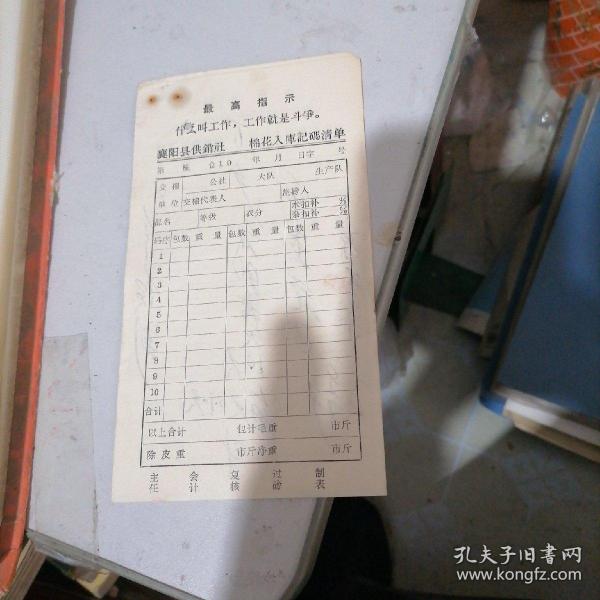 最高指示
什么叫工作，工作就是斗争。
襄阳县供銷社 棉花入庫記碼清单
第 仓10 年 月 日字 号
交棉 公社 大队 生产队
单位 交棉代表人 施磅人
品名 等級 衣分 水扣补 % 杂扣补 %
码序 包数 重量 包数 重量 包数 重量
1
2
3
4
5
6
7
8
9
10
合计
以上合计 包计毛重 市斤
除皮重 市斤净重 市斤
主任 会计 复核 过磅 制表
孔夫子旧书网
www.kongfz.com